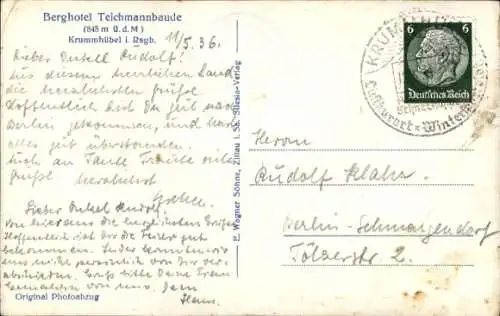 Berghotel Teichmannbaude
(845 m ü.d.M)
Krummhübel i. Rsgb.
11/5.36.
Lieber Onkel Rudolf!
Aus diesem herrlichen Land
die herzlichsten Grüße
Hoffentlich bist Du gut nach
Berlin gekommen, und hast
alles gut überstanden.
Auch an Tante viele
Grüße
herzlichst
Lieber Onkel Rudolf.
Von die herzlichsten Grüße
Hoffentlich ist Dir die Feier gut
bekommen. Leider konnten wir
uns nicht persönlich von Dir ver-
abschieden. Grüß bitte Deine Frau
von uns. Dein
Hans.
Original Photoabzug
E. Wagner Söhne, Zittau i. Sa. Silesia-Verlag
6 6
Deutsches Reich
KRUMMHÜBEL
Luftkurort * Wintersport
Herrn
Rudolf Klahn
Berlin-Schmargendorf
Tölzerstr. 2.